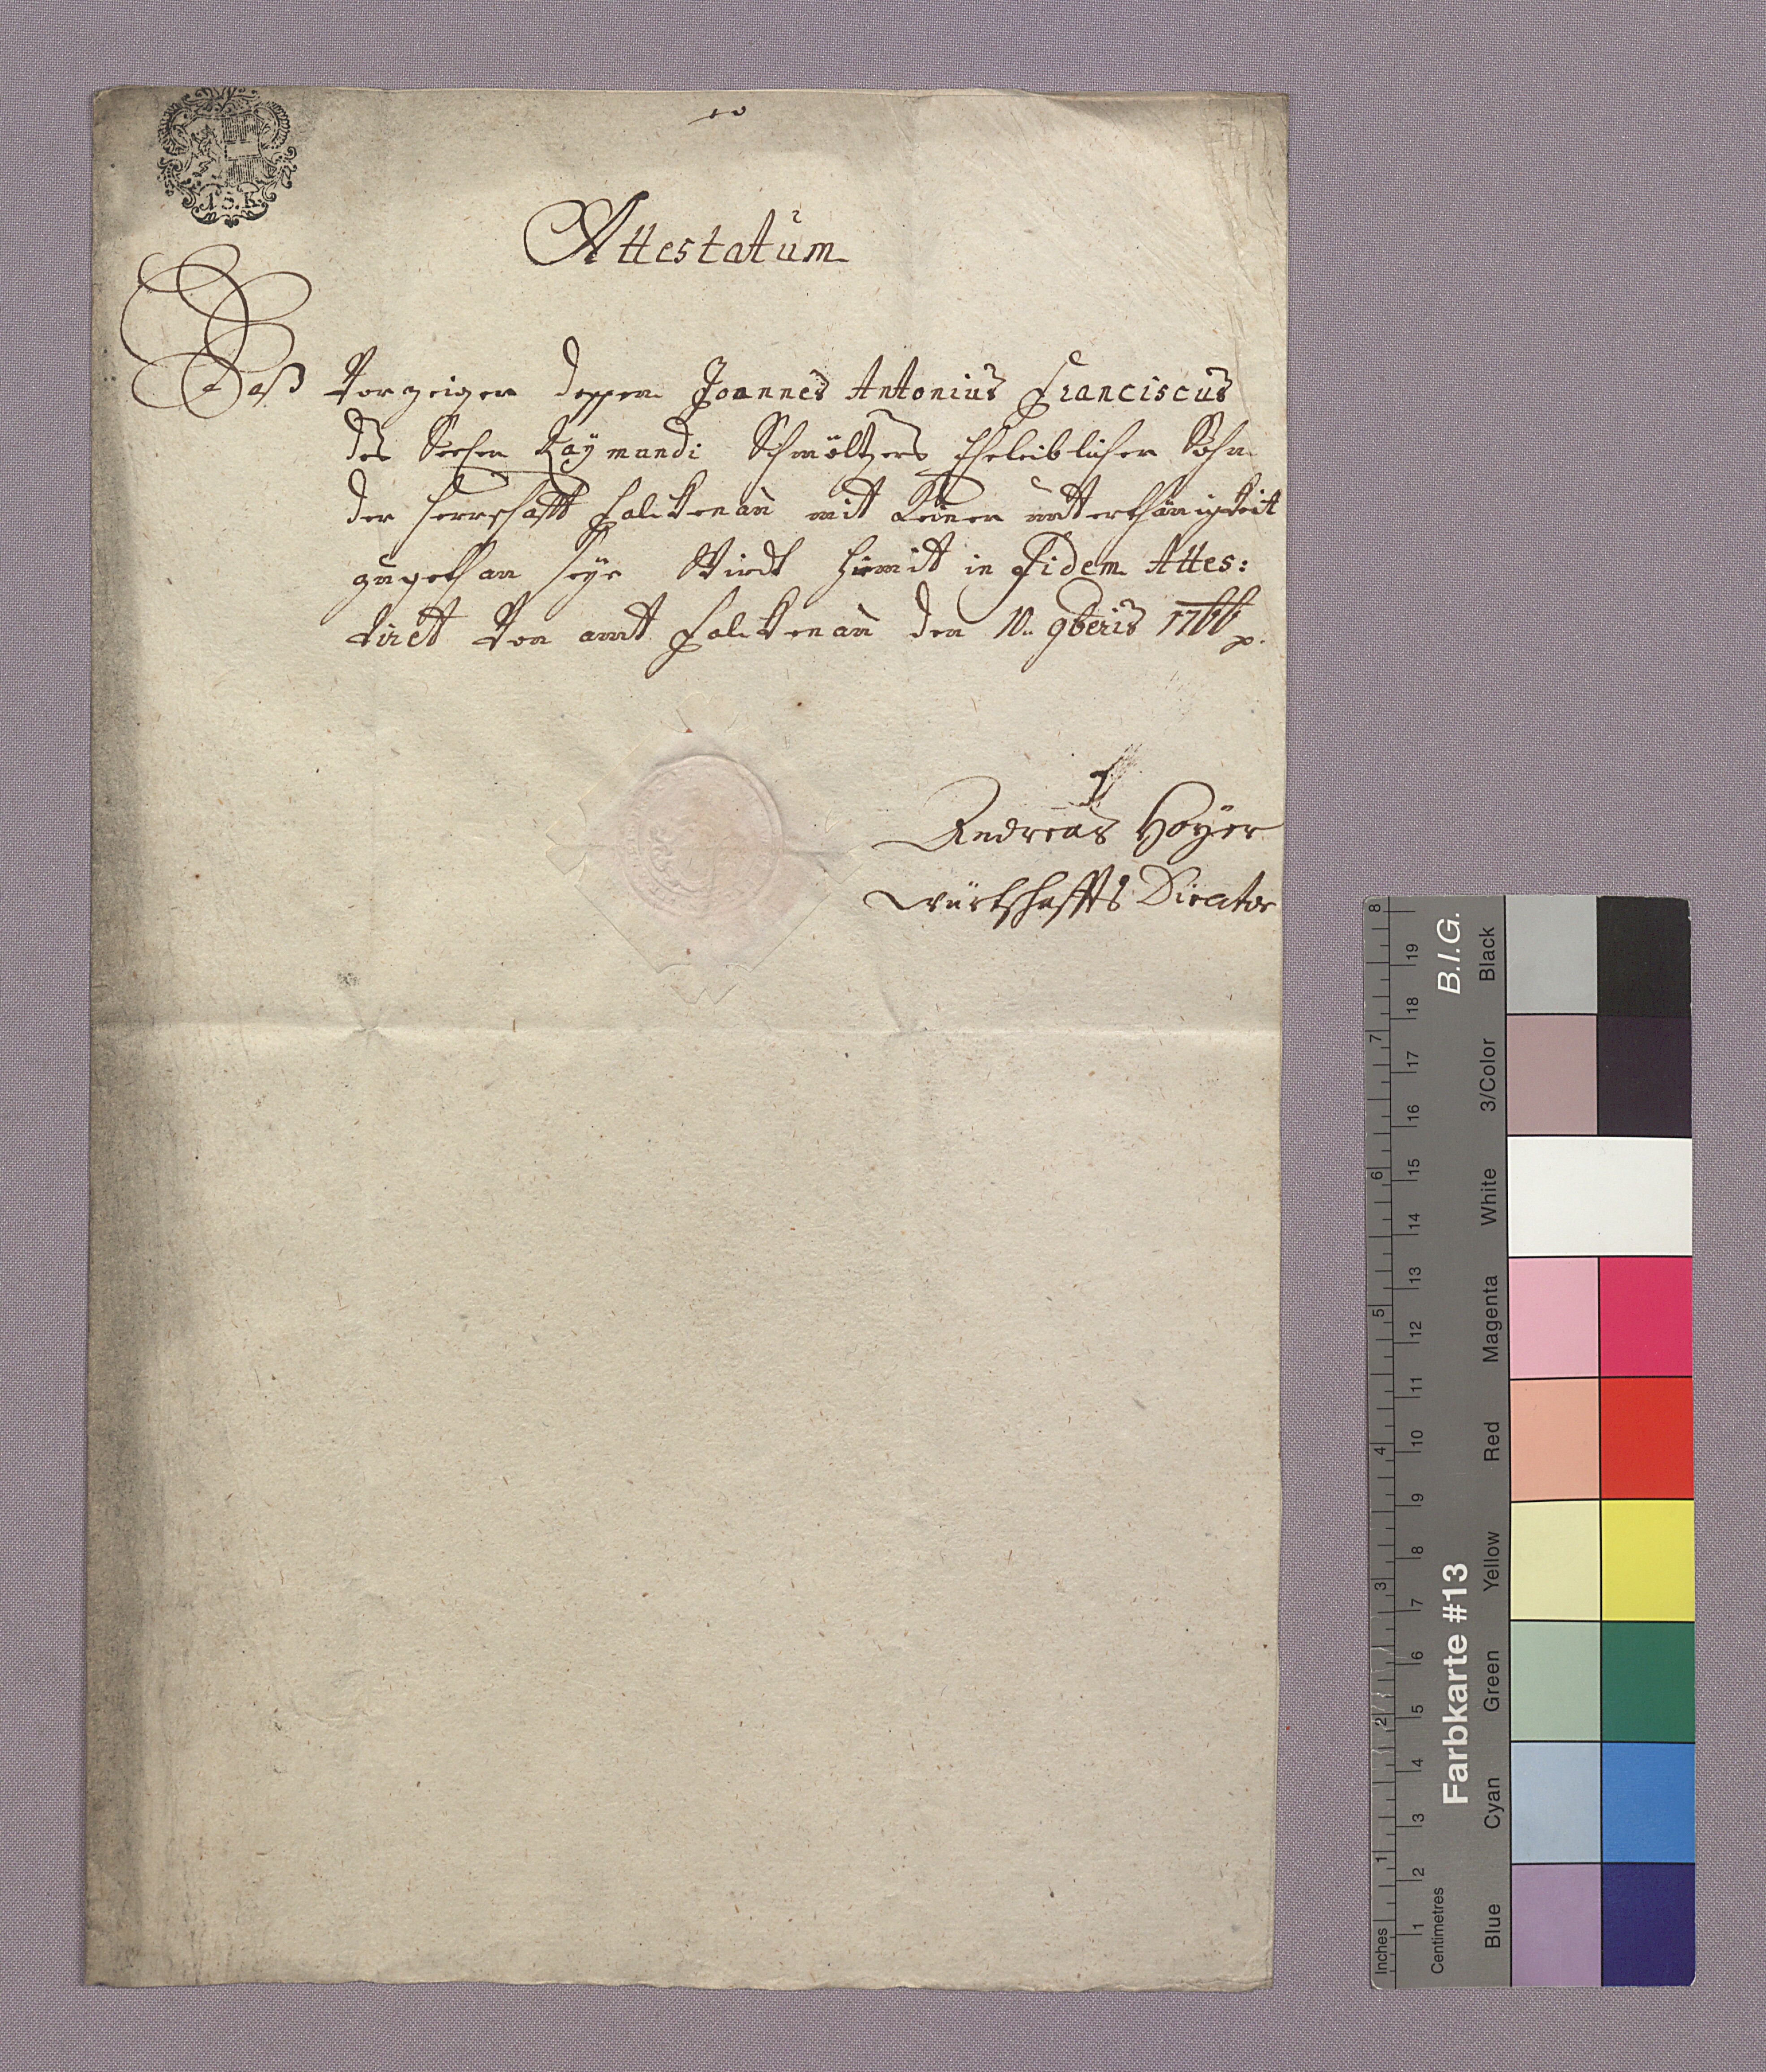 10
15. K.
Attestatum
Daß Vorzeiger dessen Joannes Antonius Franciscus
des Raymundi Schmöltzers Eheleiblicher Sohn
der Herrschafft Falckenau mit Keiner unterthänigkeit
zugethan seye Wirdt hiemit in Fidem Attes:
tiret Von amt Falckenau den 10. 9beris 1766
Andreas Hoÿer
würtschaffts Director
8
7
6
5
4
3
2
1
Inches
19
18
17
16
15
14
13
12
11
10
9
8
7
6
5
4
3
2
1
Centimetres
B.I.G.
Farbkarte #13
Black
3/Color
White
Magenta
Red
Yellow
Green
Cyan
Blue